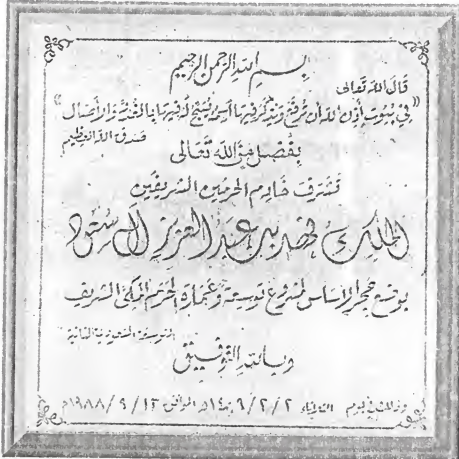 بسم الله الرحمن الرحيم
قال الله تعالى
"في بيوت أذن الله أن ترفع ويذكر فيها اسمه يسبح له فيها بالغدو والآصال"
صدق الله العظيم
بفضل من الله تعالى
تشرف خادم الحرمين الشريفين
الملك فهد بن عبد العزيز آل سعود
بوضع حجر الأساس لمشروع توسعة وعمارة الحرم المكي الشريف
التوسعة السعودية الثانية
وبالله التوفيق
وذلك في يوم الثلاثاء ٢ / ٢ / ١٤٠٩هـ الموافق ١٣ / ٩ / ١٩٨٨م